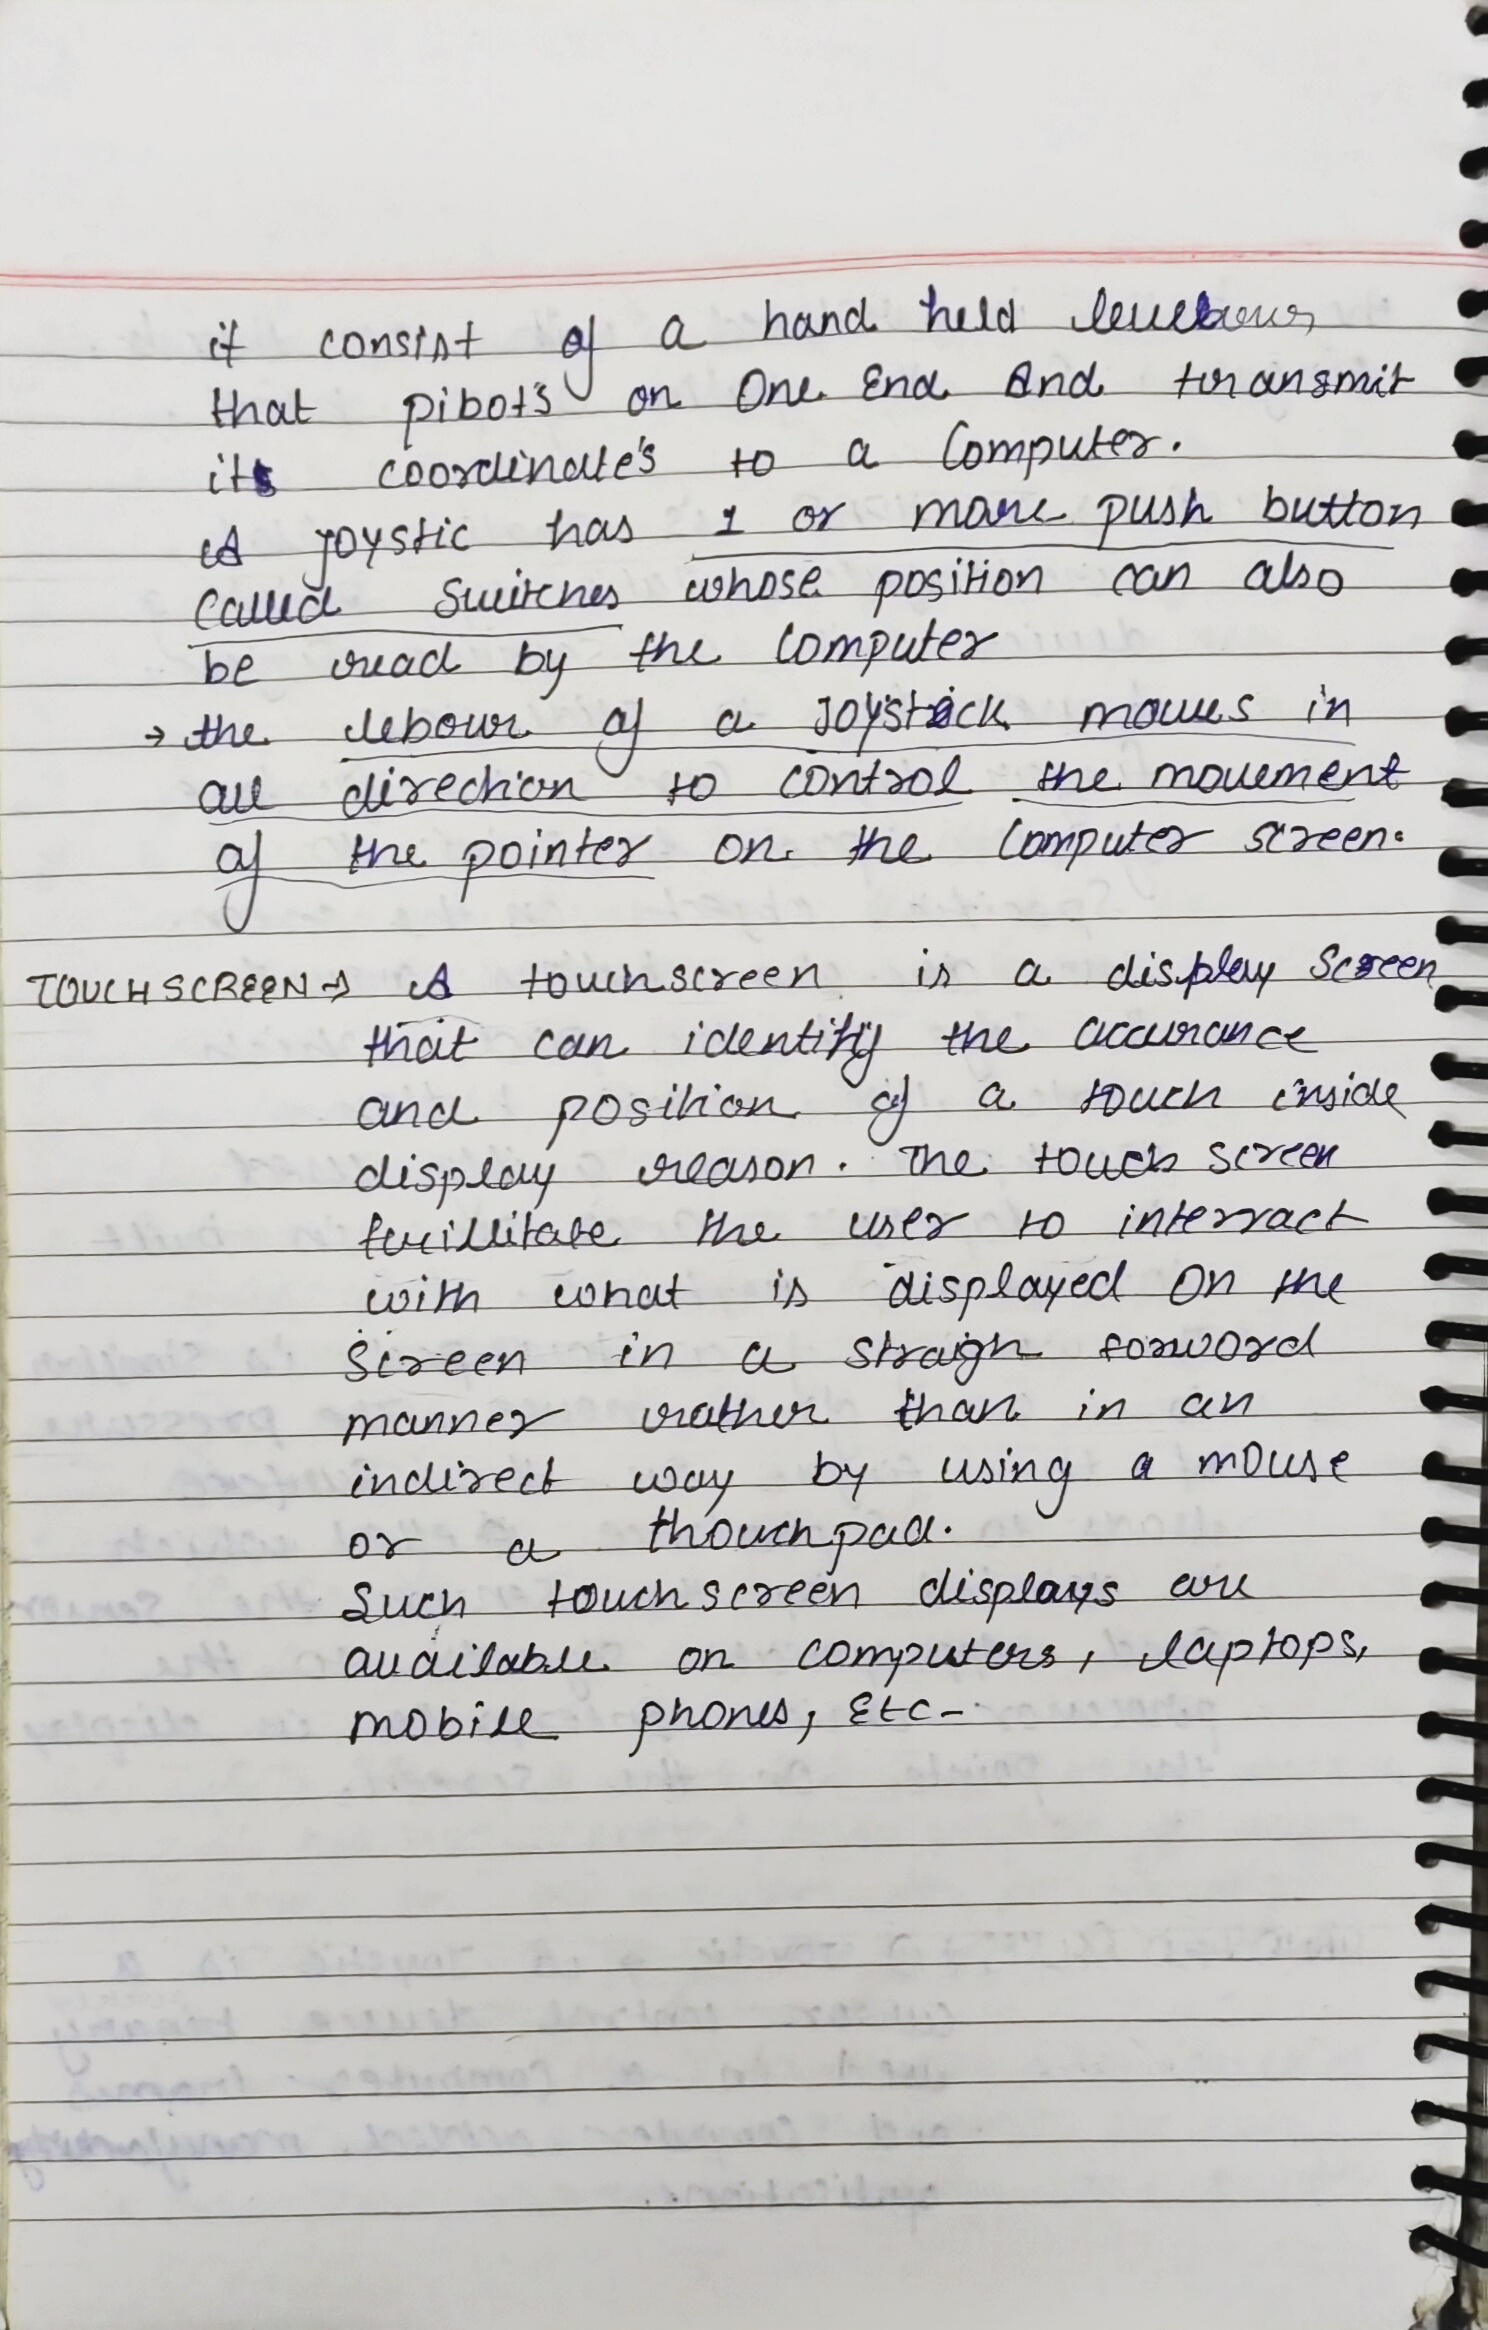 it consist of a hand held
that pibot's on One End And transmit
its coordinate's to a Computer.
A joystic has 1 or more push button
Called Switches whose position can also
be read by the Computer
→ the lebour of a Joystick moves in
all direction to control the movement
of the pointer on the Computer screen.
TOUCHSCREEN → A touchscreen is a display Screen
that can identify the accurance
and position of a touch inside
display reason. The touch screen
facillitate the user to interract
with what is displayed On the
Screen in a straigh forword
manner rather than in an
indirect way by using a mouse
or a thouchpad.
Such touchscreen displays are
available on computers, laptops,
mobile phones, Etc-